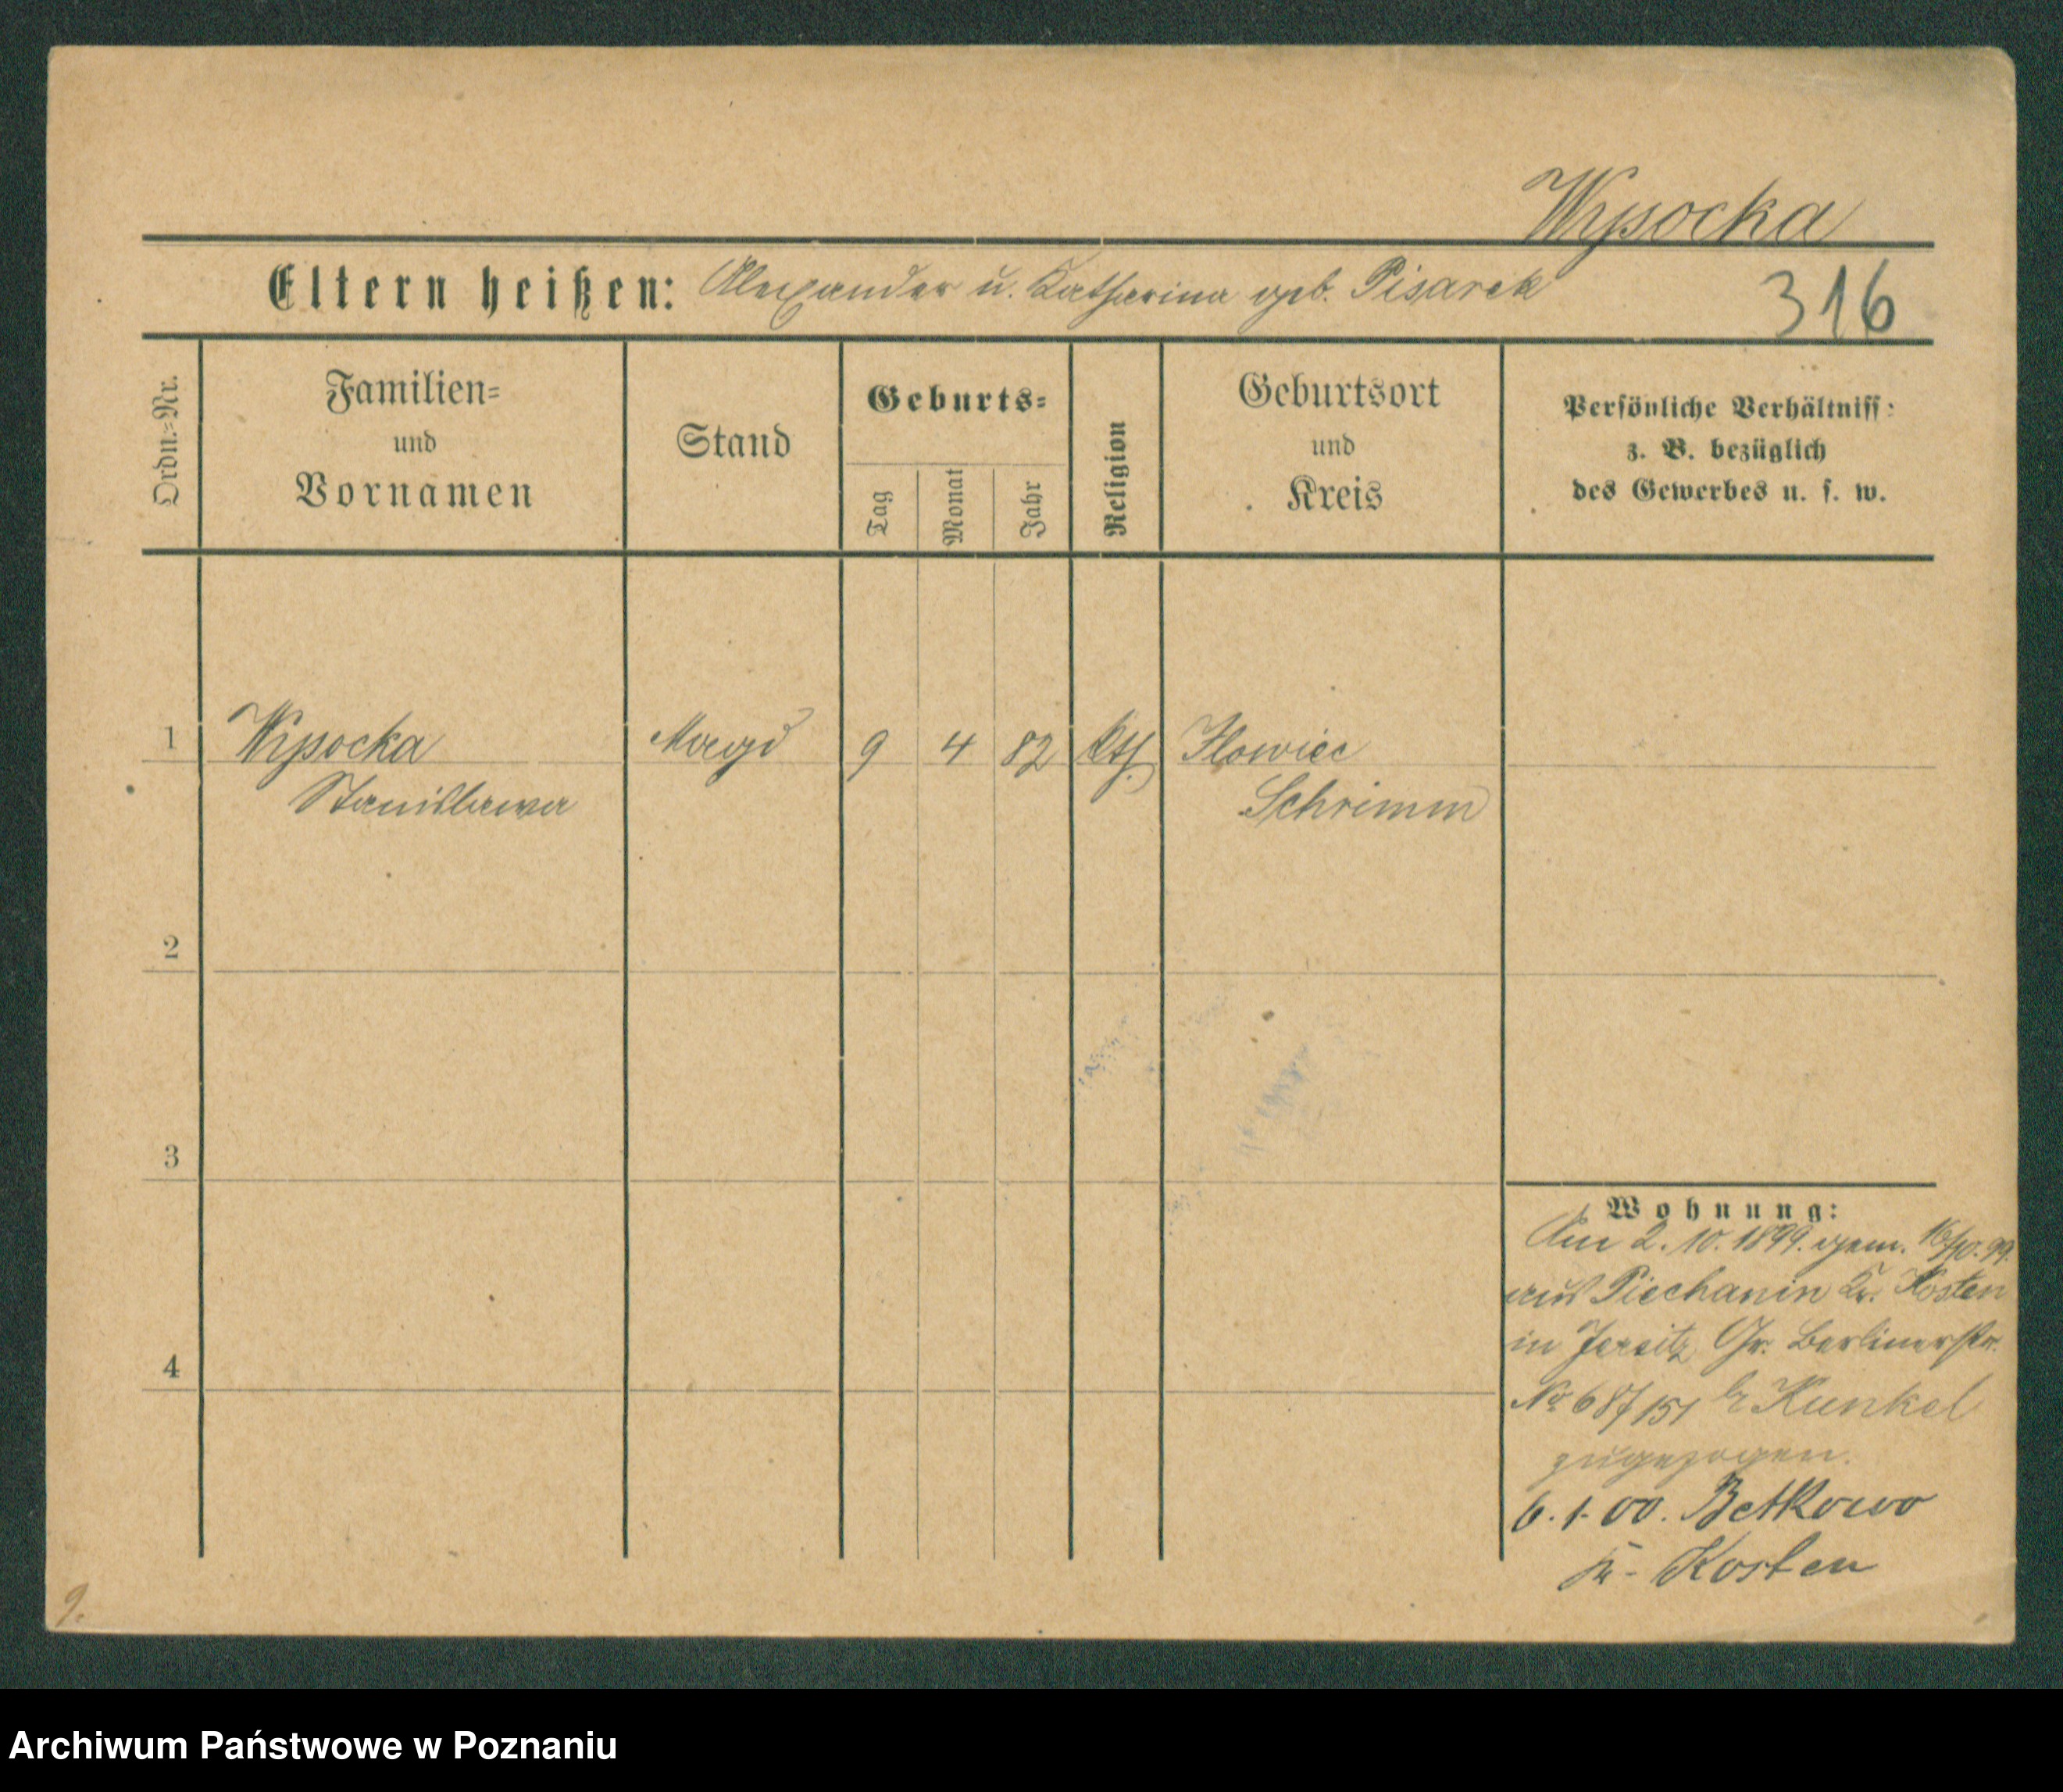 Wysocka
Eltern heißen: Alexander u. Katharina geb. Pisarek 316
Ordn.=Nr.
Familien=
und
Vornamen
Stand
Geburts=
Tag
Monat
Jahr
Religion
Geburtsort
und
Kreis
Persönliche Verhältniss:
z. B. bezüglich
des Gewerbes u. s. w.
1 Wysocka Magd 9 4 82 kth. Ilowiec
Stanislawa Schrimm
2
3
4
Wohnung:
Am 2. 10. 1899. gem. 16/10. 99.
aus Piechanin Kr. Kosten
in Jersitz Gr. Berlinerstr.
No 687/151 b Kunkel
zugezogen.
6. 1. 00. Betkowo
Kr. Kosten
9.
Archiwum Państwowe w Poznaniu